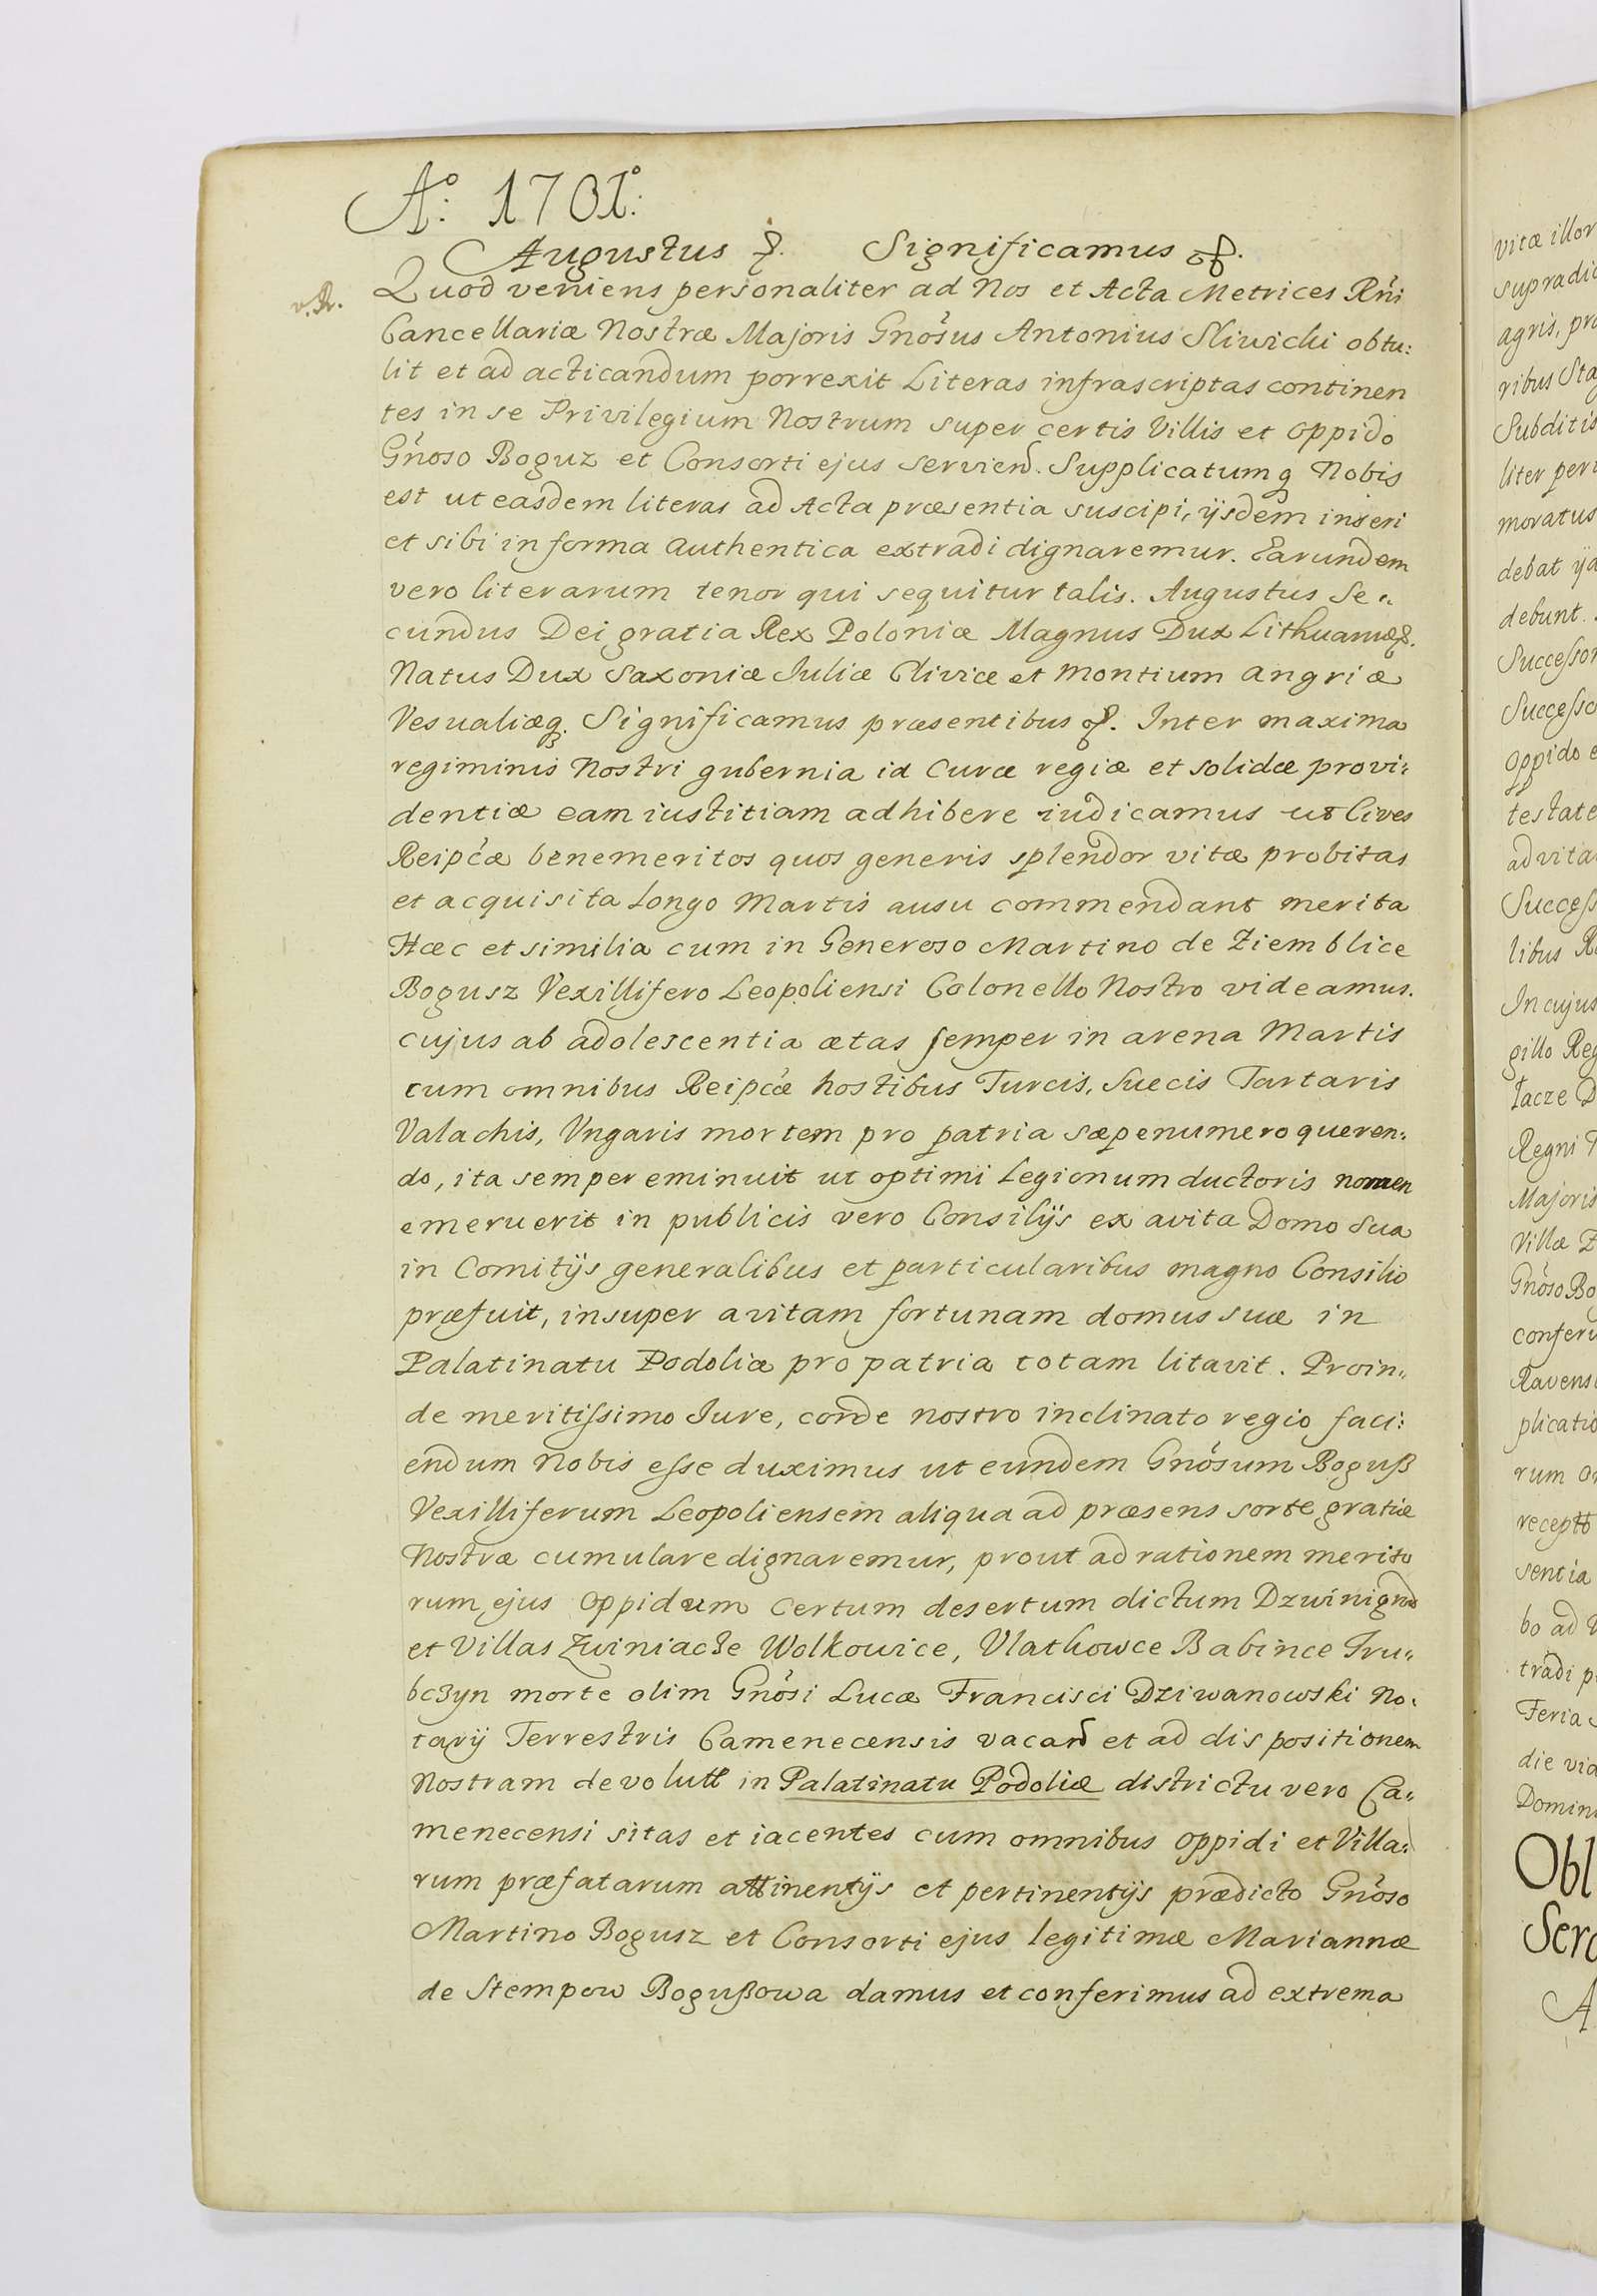 A.º 1701.º
Augustus &. Significamus &.
v. R.
Quod veniens personaliter ad Nos et Acta Metrices Rñi
Cancellariæ Nostræ Majoris Gnosus Antonius Sliwicki obtu:
lit et ad acticandum porrexit Literas infrascriptas continen
tes in se Privilegium Nostrum super certis Villis et oppido
Gnoso Boguz et Consorti ejus serviend. Supplicatumq Nobis
est ut easdem literas ad Acta præsentia suscipi, ijsdem inseri
et sibi in forma authentica extradi dignaremur. Earundem
vero literarum tenor qui sequitur talis. Augustus Se:
cundus Dei gratia Rex Poloniæ Magnus Dux Lithuaniæ &.
Natus Dux Saxoniæ Juliæ Cliviæ et Montium angriæ
Vesualiæq. Significamus præsentibus &. Inter maxima
regiminis Nostri gubernia id Curæ regiæ et solidæ provi:
dentiæ eam iustitiam adhibere iudicamus ut Cives
Reipcæ benemeritos quos generis splendor vitæ probitas
et acquisita Longo Martis ausu commendant merita
Hæc et similia cum in Generoso Martino de Ziemblice
Bogusz Vexillifero Leopoliensi Colonello Nostro videamus.
cujus ab adolescentia ætas semper in arena Martis
cum omnibus Reipcæ hostibus Turcis, Suecis Tartaris
Valachis, Vngaris mortem pro patria sæpenumero queren:
do, ita semper eminuit ut optimi Legionum ductoris nomen
emeruerit in publicis vero Consilijs ex avita Domo Sua
in Comitijs generalibus et particularibus magno Consilio
præfuit, insuper avitam fortunam domus suæ in
Palatinatu Podoliæ pro patria totam litavit. Proin:
de meritissimo Jure, corde nostro inclinato regio faci:
endum Nobis esse duximus ut eundem Gnosum Boguß
Vexilliferum Leopoliensem aliqua ad præsens sorte gratiæ
Nostræ cumulare dignaremur, prout ad rationem merito
rum ejus oppidum certum desertum dictum Dzwinigrod
et Villas Zwiniacze Wolkowice, Vlathowce Babince Tru:
bczyn morte olim Gnosi Lucæ Francisci Dziwanowski No:
tarij Terrestris Camenecensis vacand et ad dispositionem
Nostram devolutt in Palatinatu Podoliæ districtu vero Ca:
menecensi sitas et iacentes cum omnibus oppidi et Villa:
rum præfatarum attinentijs et pertinentijs prædicto Gnoso
Martino Bogusz et Consorti ejus legitimæ Mariannæ
de Stempow Bogußowa damus et conferimus ad extrema
vitæ illor
supradic
agris, pra
ribus Sta
Subditis
liter peri
moratus
debat ija
debunt.
Successor
Successo
oppido e
testate
ad vita
Success
libus R
In cujus
gillo Reg
Tacze D
Regni
Majoris
Villæ Z
Gnoso Bo
conferi
Ravens
plicatio
rum o
receptt
sentia
bo ad
tradi p
Feria
die vid
Domin
Obl
Serc
A